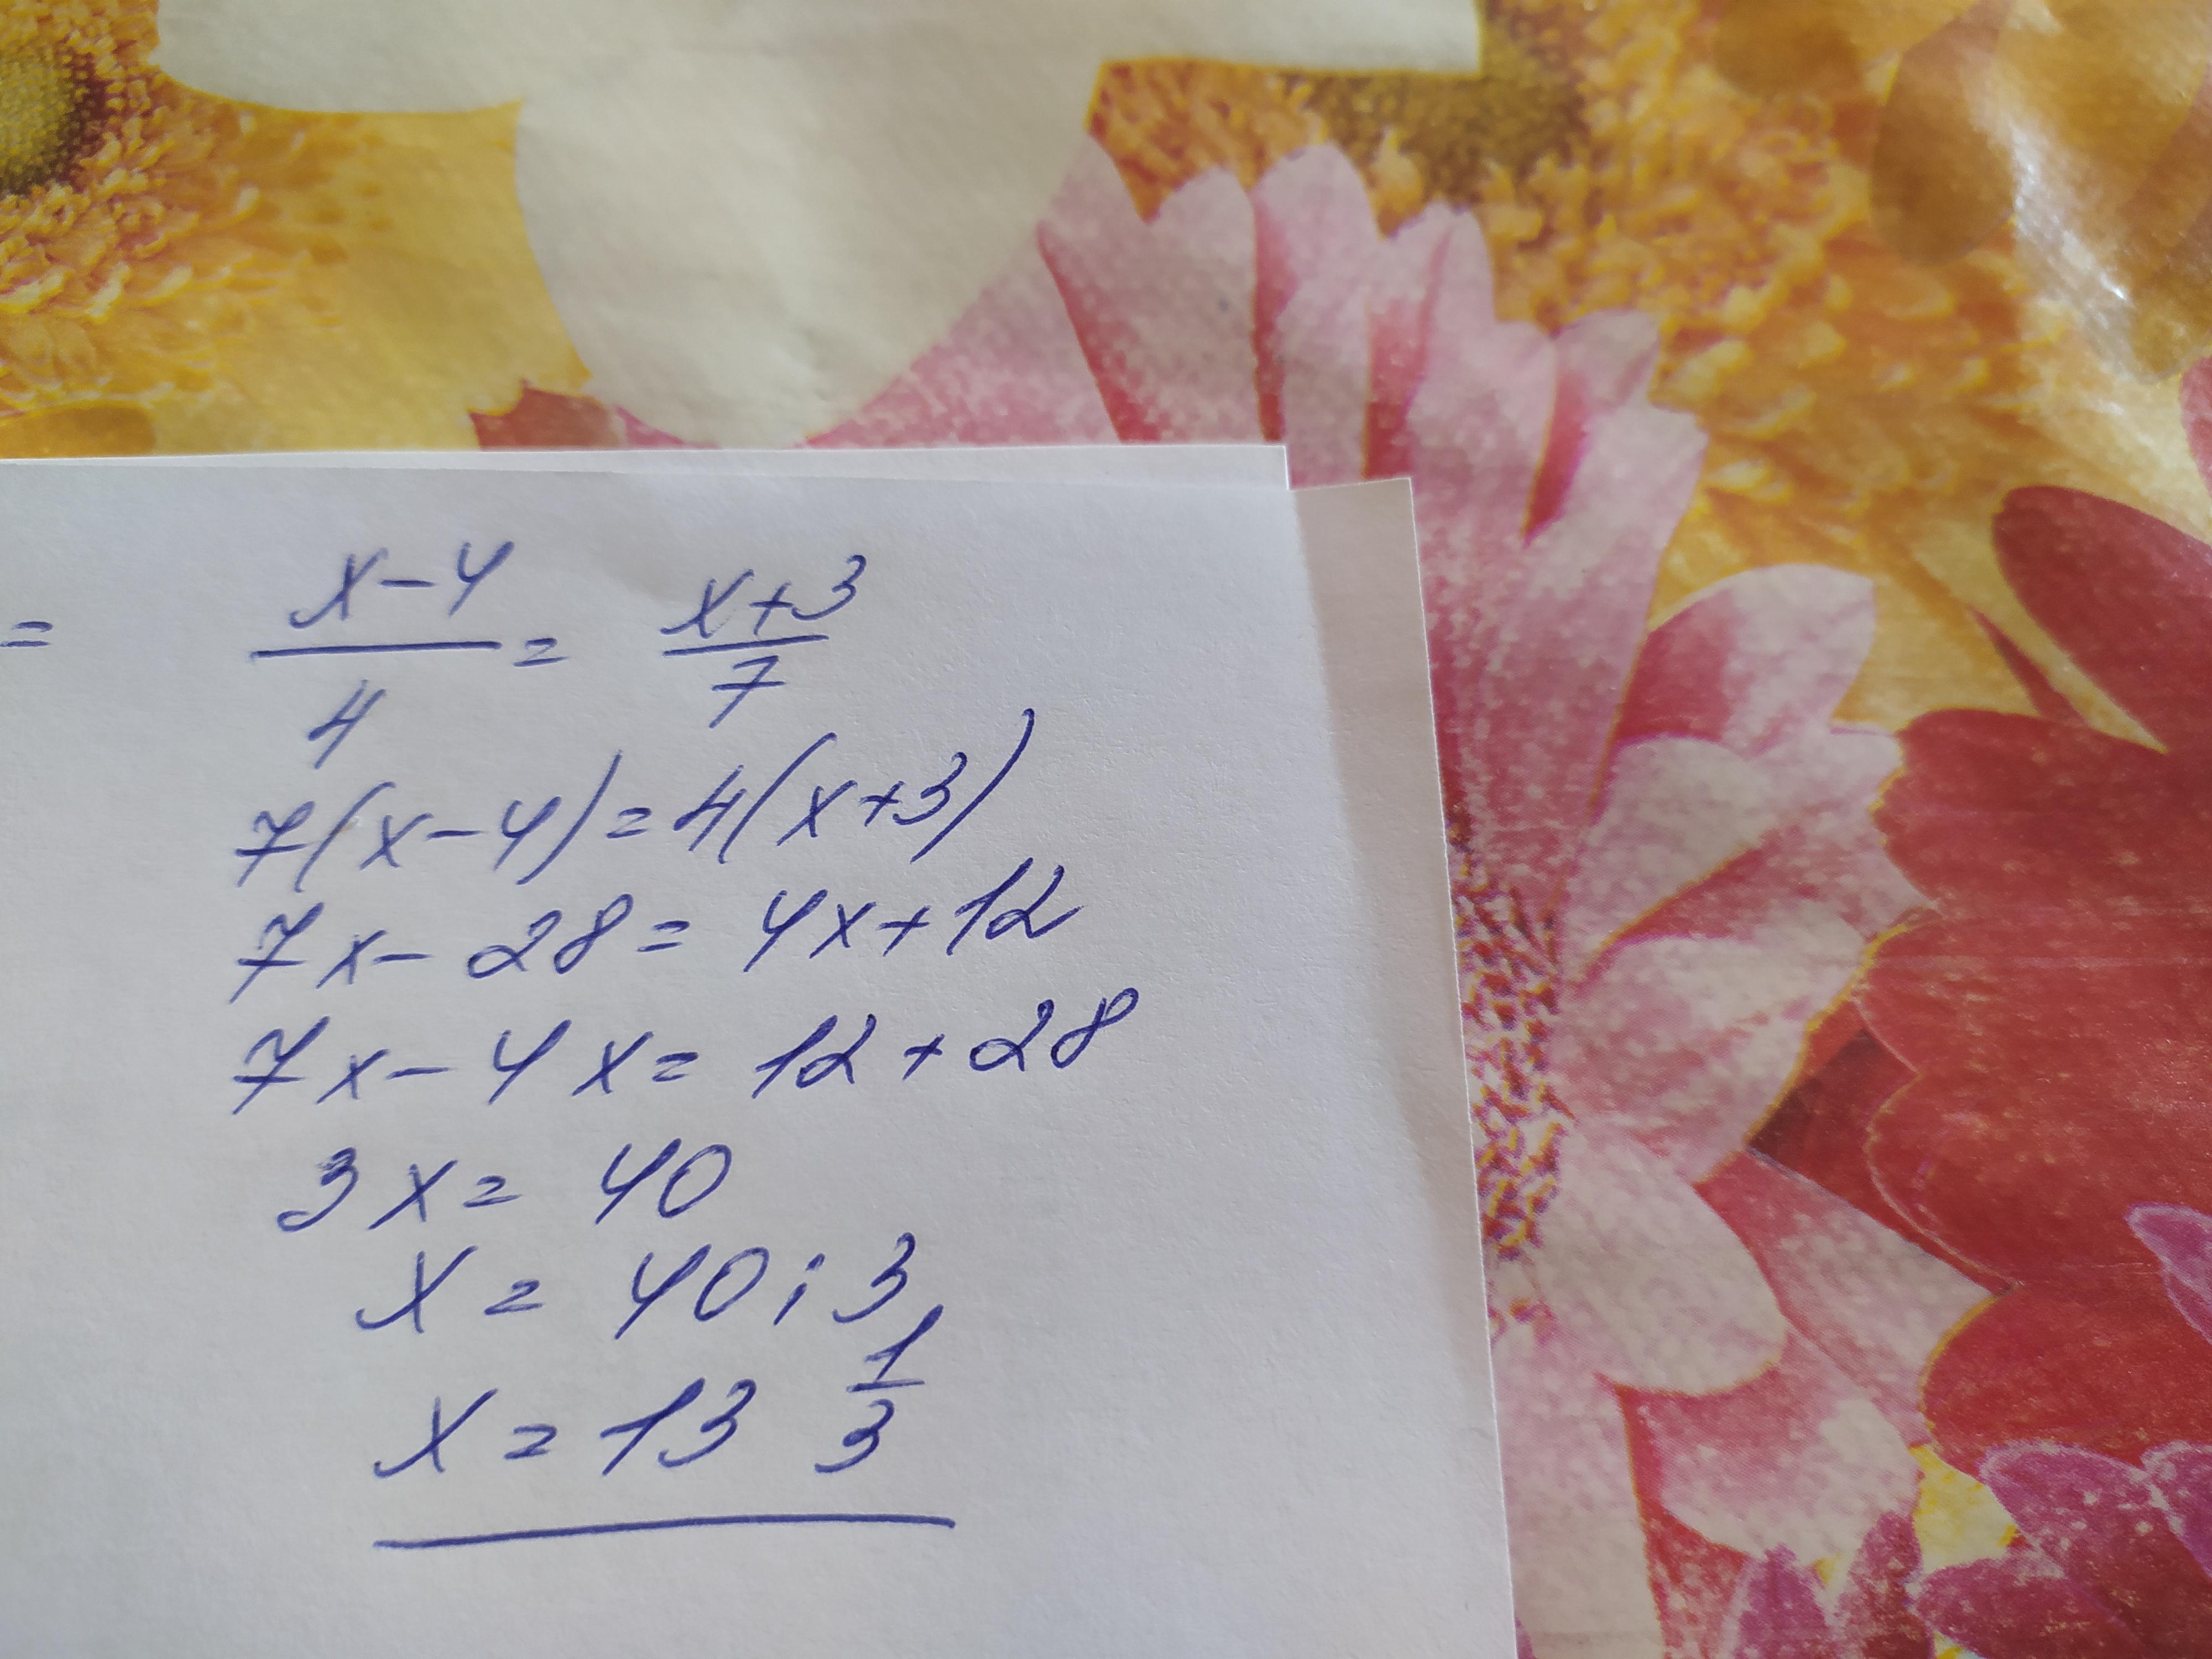 = x-4/4 = x+3/7
7(x-4)=4(x+3)
7x-28=4x+12
7x-4x=12+28
3x=40
x=40:3
x=13 1/3